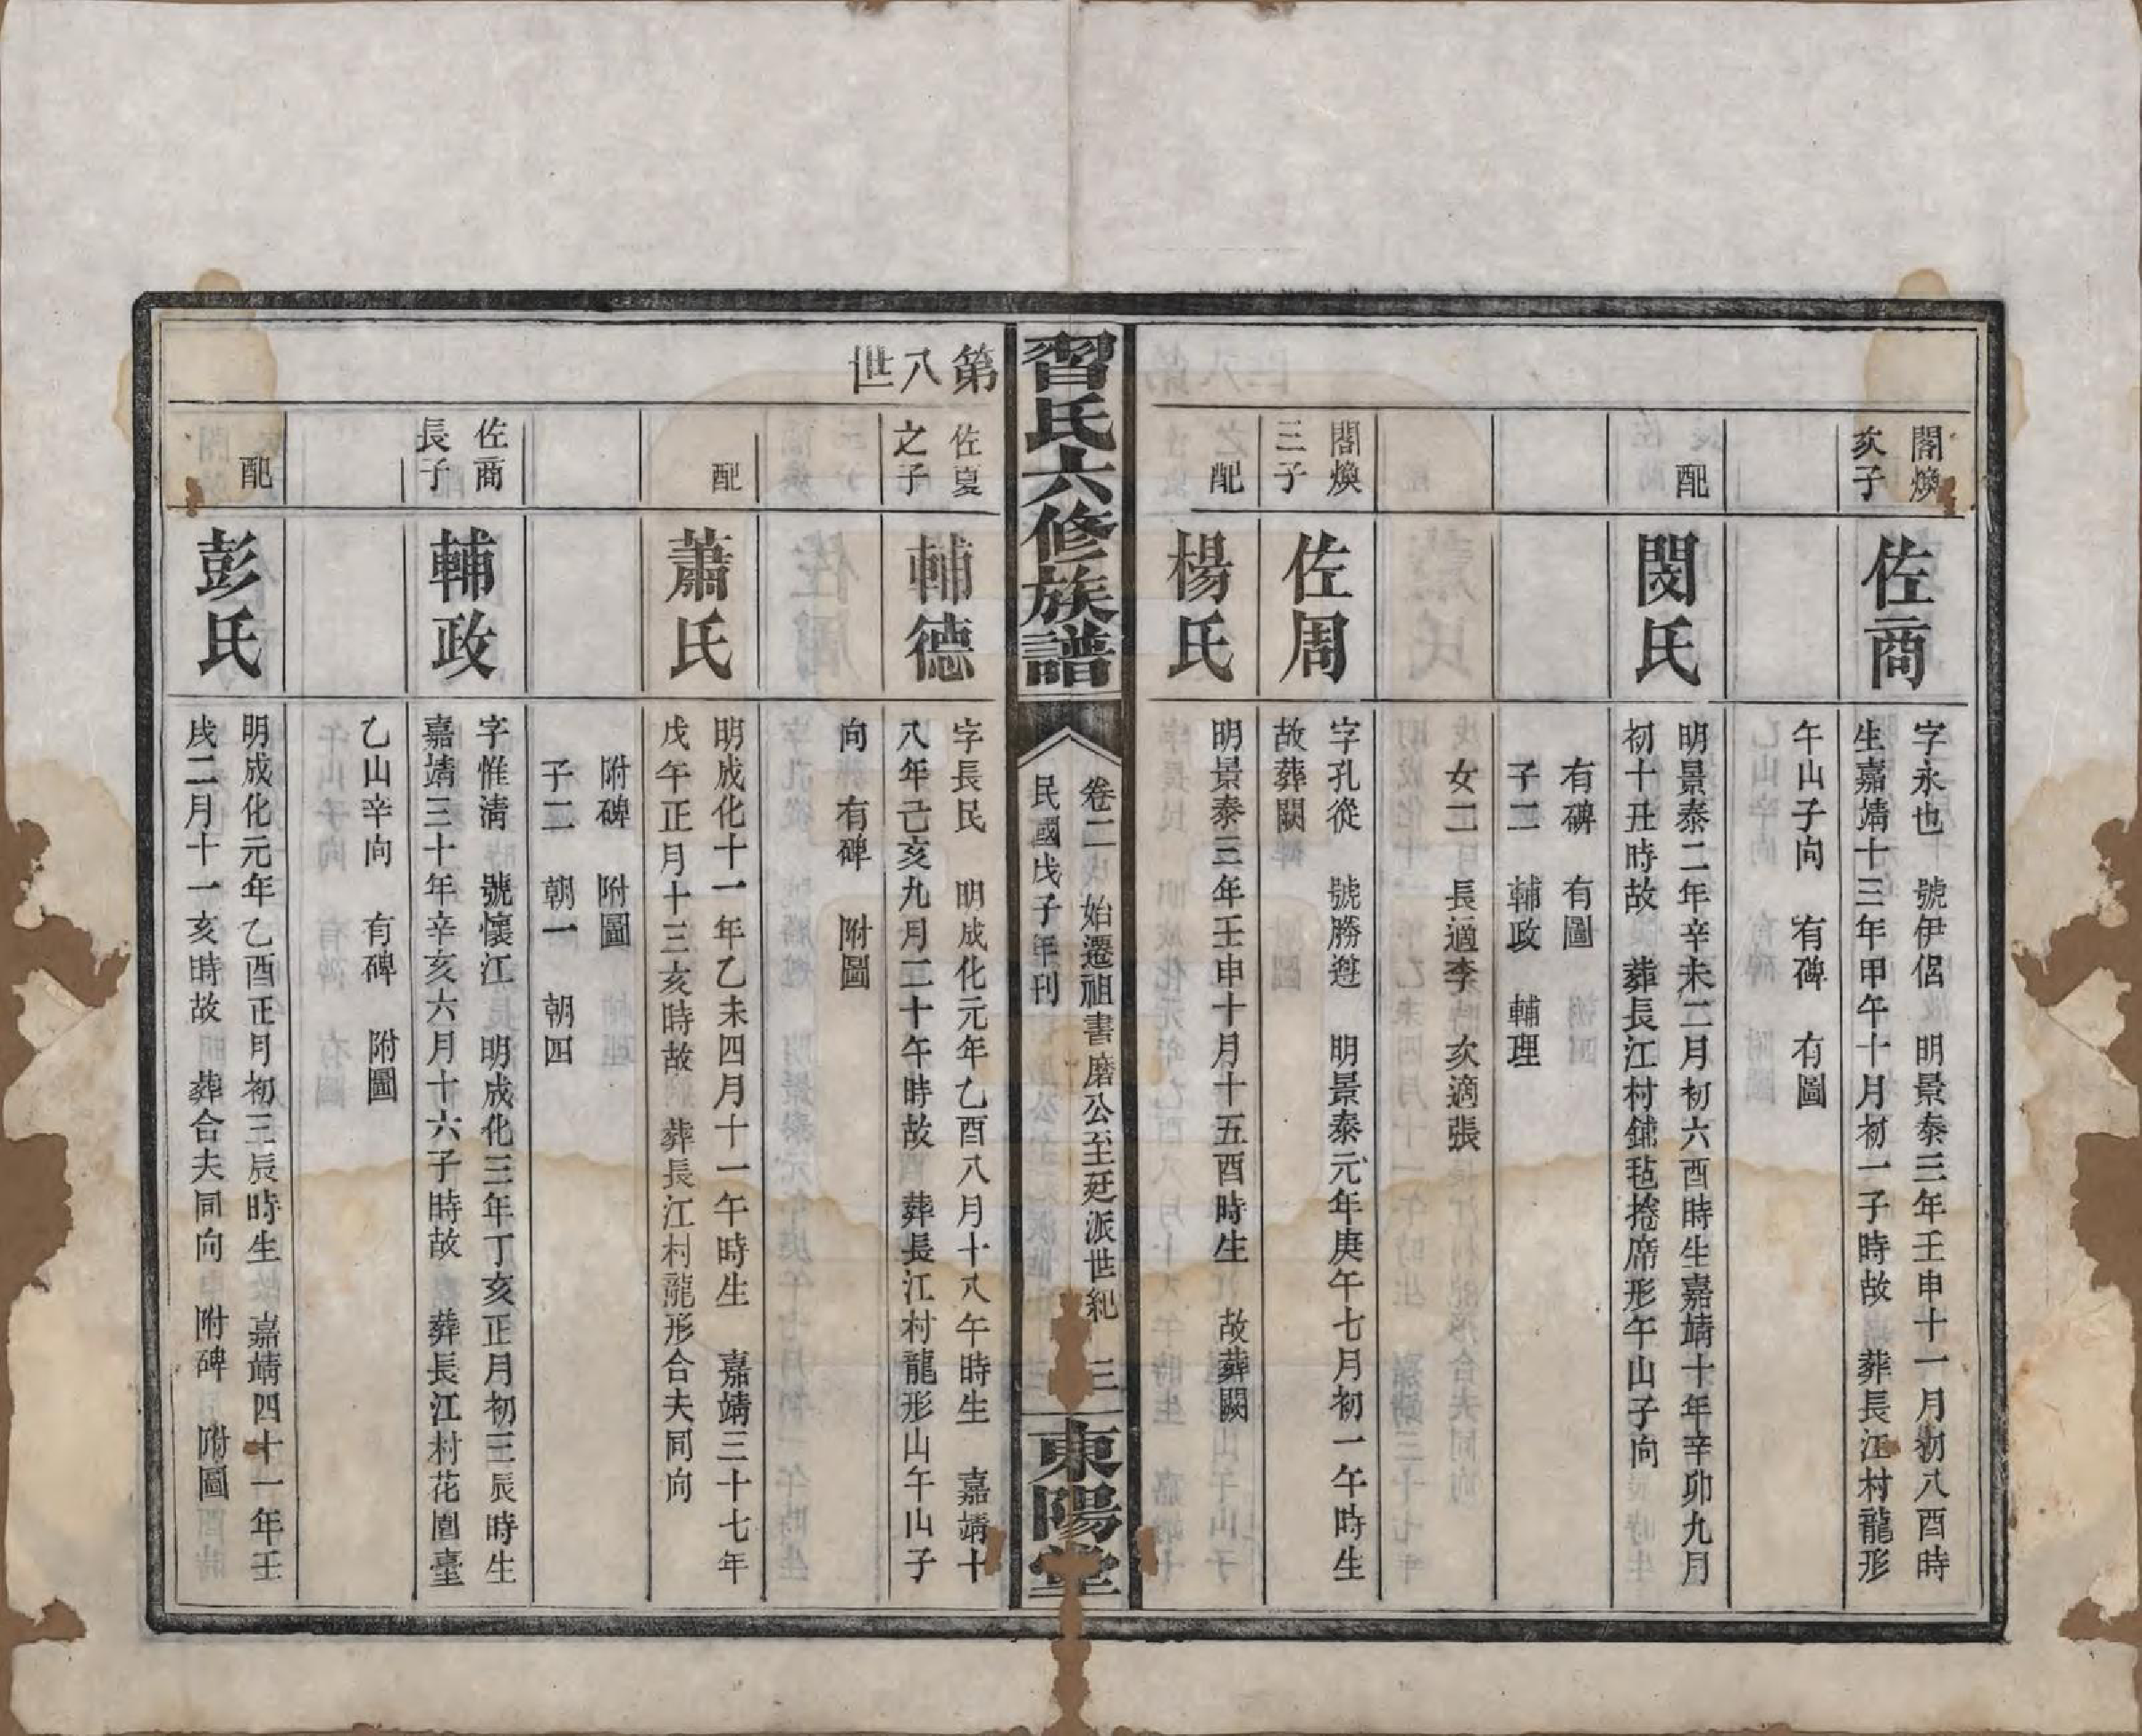 閤煥
亥子
佐商
字永也　號伊侶　明景泰三年壬申十一月初八酉時
生嘉靖十三年甲午十月初一子時故　葬長江村龍形
午山子向　有碑　有圖
配
閔氏
明景泰二年辛未二月初六酉時生嘉靖十年辛卯九月
初十丑時故　葬長江村鋪毡捲席形午山子向
有碑　有圖
子二　輔政　輔理
女二　長適李　亥適張
閤煥
三子
佐周
字孔從　號勝愆　明景泰元年庚午七月初一午時生
故葬闕
配
楊氏
明景泰三年壬申十月十五酉時生　故葬闕
習氏六修族譜
卷二　始遷祖書磨公至廷派世紀　三
民國戊子年刊
東陽堂
第八世
佐夏
之子
輔德
字長民　明成化元年乙酉八月十八午時生　嘉靖十
八年己亥九月二十午時故　葬長江村龍形山午山子
向　有碑　附圖
配
蕭氏
明成化十一年乙未四月十一午時生　嘉靖三十七年
戊午正月十三亥時故　葬長江村龍形合夫同向
附碑　附圖
子二　朝一　朝四
佐商
長子
輔政
字惟清　號懷江　明成化三年丁亥正月初三辰時生
嘉靖三十年辛亥六月十六子時故　葬長江村花園臺
乙山辛向　有碑　附圖
配
彭氏
明成化元年乙酉正月初三辰時生　嘉靖四十一年壬
戌二月十一亥時故　葬合夫同向　附碑　附圖